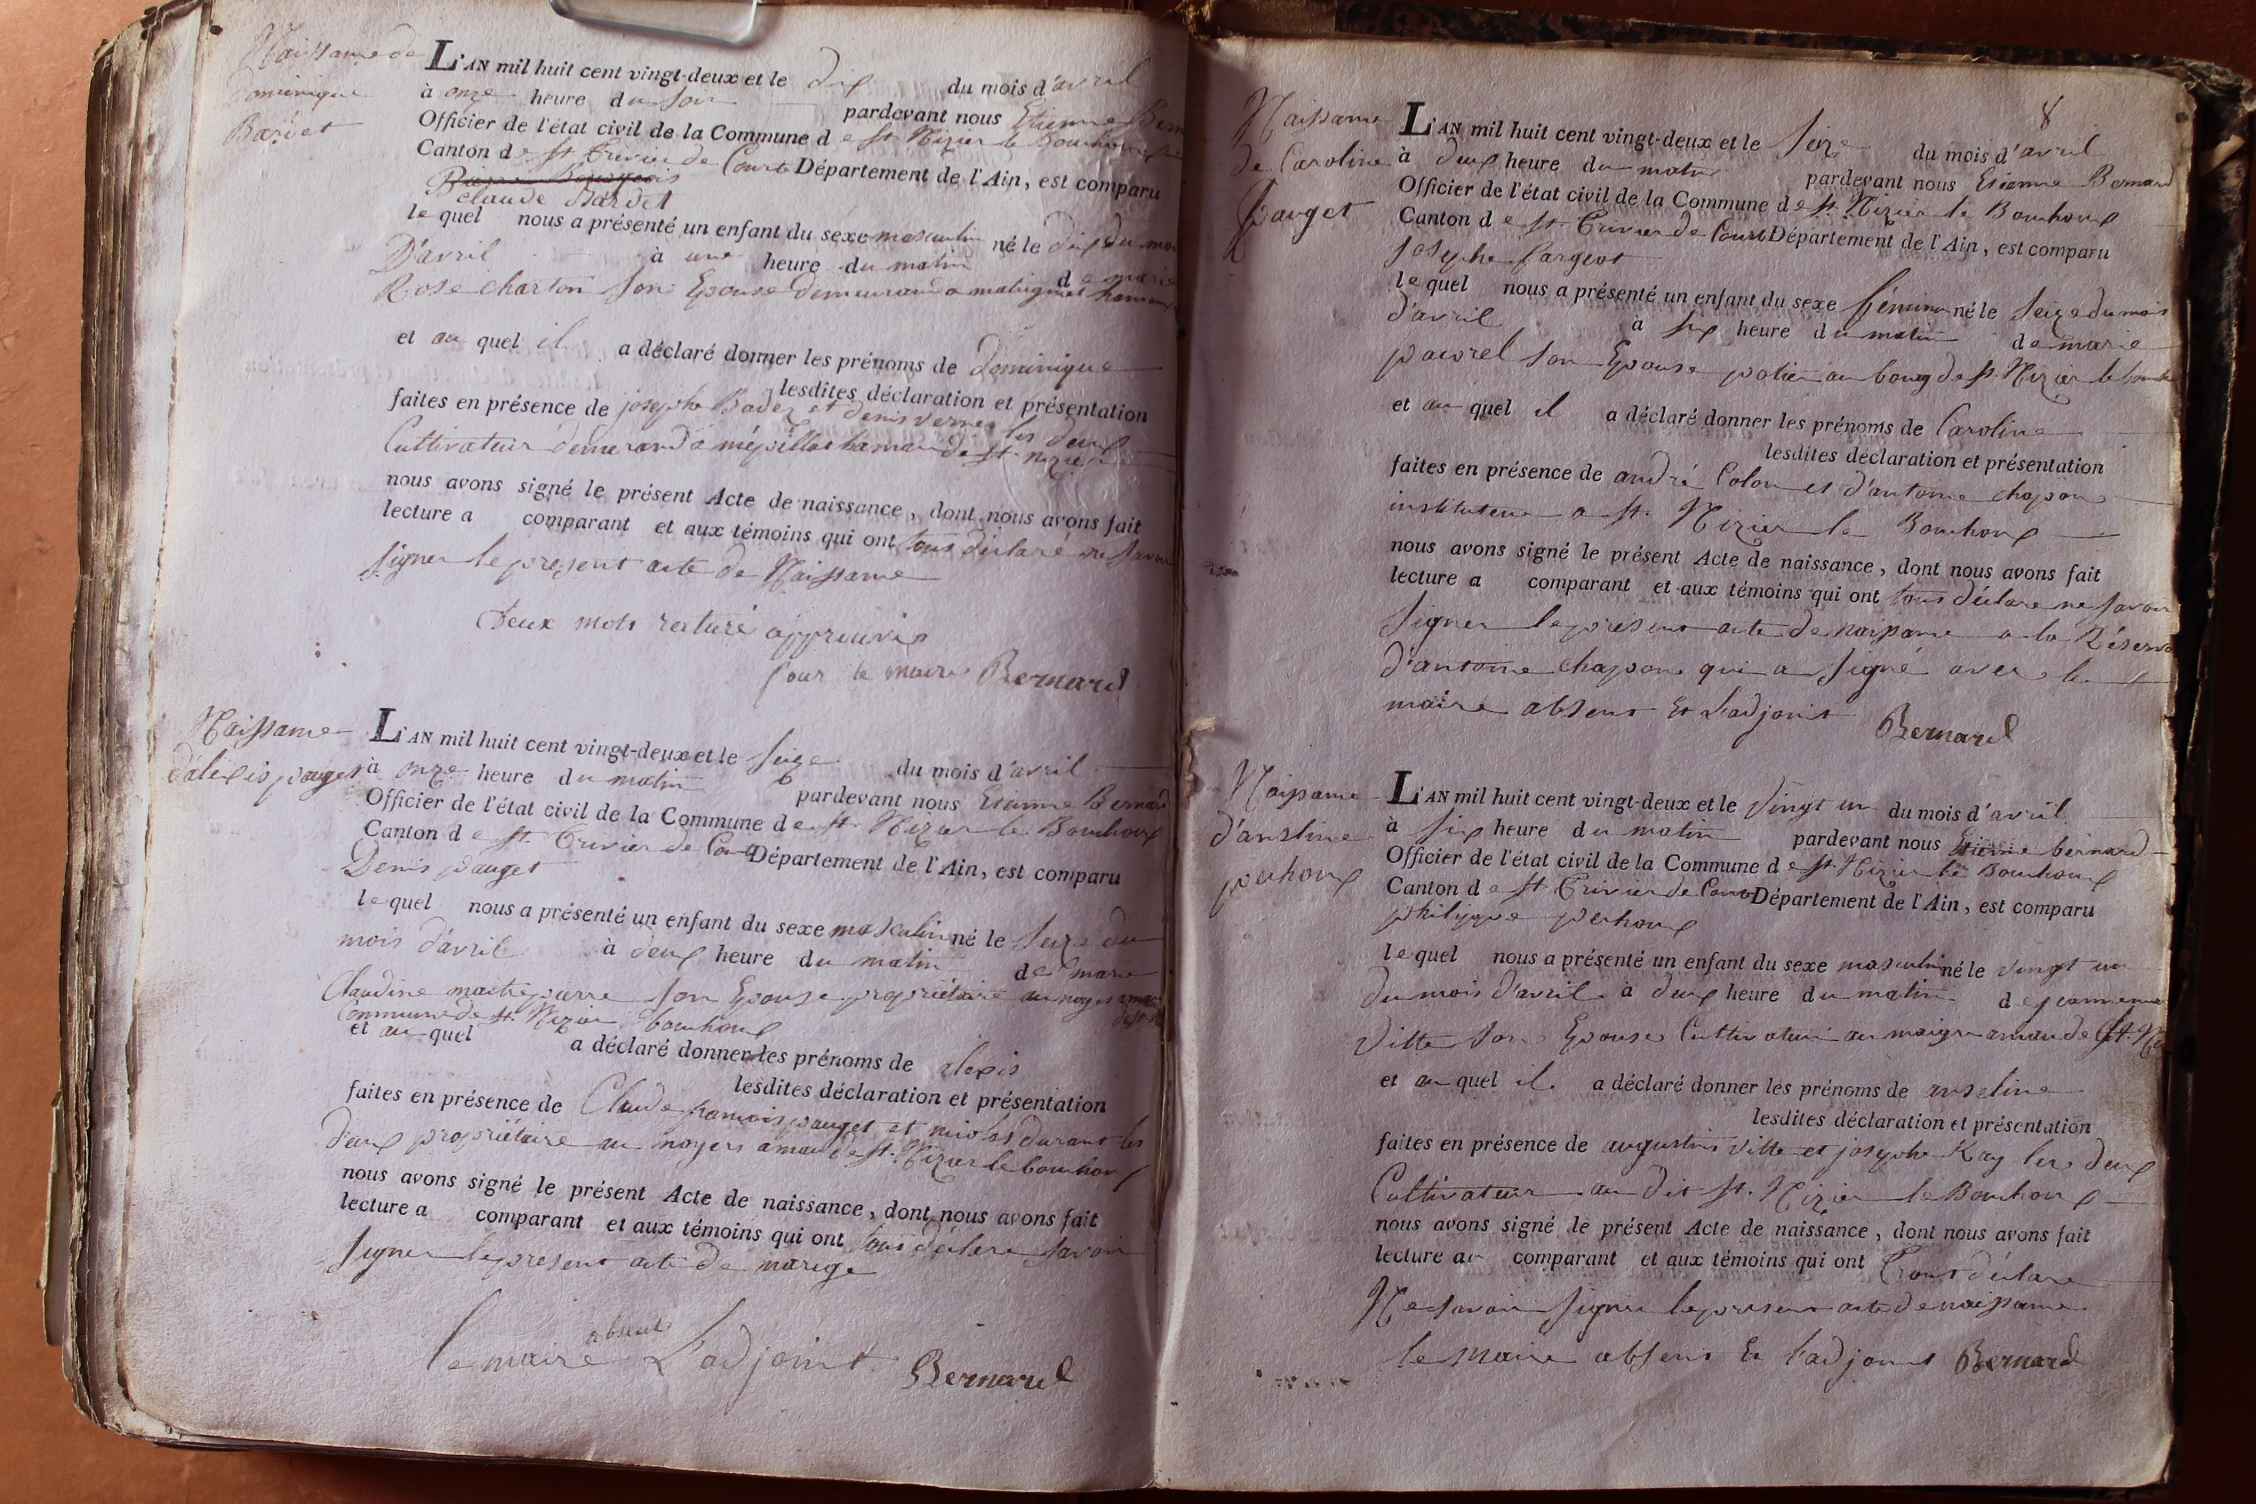 Naissance de
Dominique
Bardet
L'AN mil huit cent vingt-deux et le dix du mois d'avril
à onze heure du soir pardevant nous Etienne
Officier de l'état civil de la Commune de St Nizier le Bouchoux
Canton de St Trivier de Courtes Département de l'Ain, est comparu
claude Bardet
lequel nous a présenté un enfant du sexe masculin né le dix du mois
D'avril à une heure du matin de marie
Rose charton son Epouse demeurand a hameau
et au quel il a déclaré donner les prénoms de Dominique
lesdites déclaration et présentation
faites en présence de josephe et denis les deux
Cultivateur a de St nizier
nous avons signé le présent Acte de naissance, dont nous avons fait
lecture a comparant et aux témoins qui ont tous déclaré ne savoir
signer le present acte de Naissance
Deux mots raturé appreuvés
pour le maire Bernard
Naissance
d'alexis pauget
L'AN mil huit cent vingt-deux et le seize du mois d'avril
à onze heure du matin pardevant nous Etienne Bernard
Officier de l'état civil de la Commune de St Nizier le Bouchoux
Canton de St Trivier de Cour Département de l'Ain, est comparu
Denis pauget
lequel nous a présenté un enfant du sexe masculin né le seize du
mois d'avril à deux heure du matin de marie
Claudine son Epouse propriétaire au noyer
Commune de St Nizier bouchoux
et au quel a déclaré donner les prénoms de alexis
lesdites déclaration et présentation
faites en présence de Claude francois pauget et nicolas durant les
deux propriétaire au noyers amau de St Nizier le bouchoux
nous avons signé le présent Acte de naissance, dont nous avons fait
lecture a comparant et aux témoins qui ont tous déclare savoir
signer le present acte de marige
le maire absent L'adjoint Bernard
8
Naissance
de Caroline
pauget
L'AN mil huit cent vingt-deux et le seize du mois d'avril
à deux heure du matin pardevant nous Etienne Bernard
Officier de l'état civil de la Commune de St Nizier le Bouchoux
Canton de St Trivier de Court Département de l'Ain, est comparu
josephe
lequel nous a présenté un enfant du sexe féminin né le seize du mois
d'avril à six heure du matin de marie
son Epouse potier au bourg de St Nizier le
et au quel il a déclaré donner les prénoms de Caroline
lesdites déclaration et présentation
faites en présence de andré Colon et d'antoine chapon
instituteur a St Nizier le Bouhoux
nous avons signé le présent Acte de naissance, dont nous avons fait
lecture a comparant et aux témoins qui ont tous déclare ne savoir
signer le present acte de naissance a la Réserve
d'antoine chapon qui a signé avec le
maire absent Et L'adjoint Bernard
Naissance
d'anseline
pechoux
L'AN mil huit cent vingt-deux et le vingt un du mois d'avril
à six heure du matin pardevant nous Etienne bernard
Officier de l'état civil de la Commune de St Nizier le Bouchoux
Canton de St Trivier de Cour Département de l'Ain, est comparu
philippe pechoux
lequel nous a présenté un enfant du sexe masculin né le vingt un
du mois d'avril à deux heure du matin de
Vitte son Epouse Cultivateur au amau de St
et au quel il a déclaré donner les prénoms de anseline
lesdites déclaration et présentation
faites en présence de augustin Vitte et josephe Ray les deux
Cultivateur au dit St Nizier le Bouchoux
nous avons signé le présent Acte de naissance, dont nous avons fait
lecture au comparant et aux témoins qui ont déclare
Ne savoir signer le present acte de naissance
le Maire absent Et l'adjoint Bernard